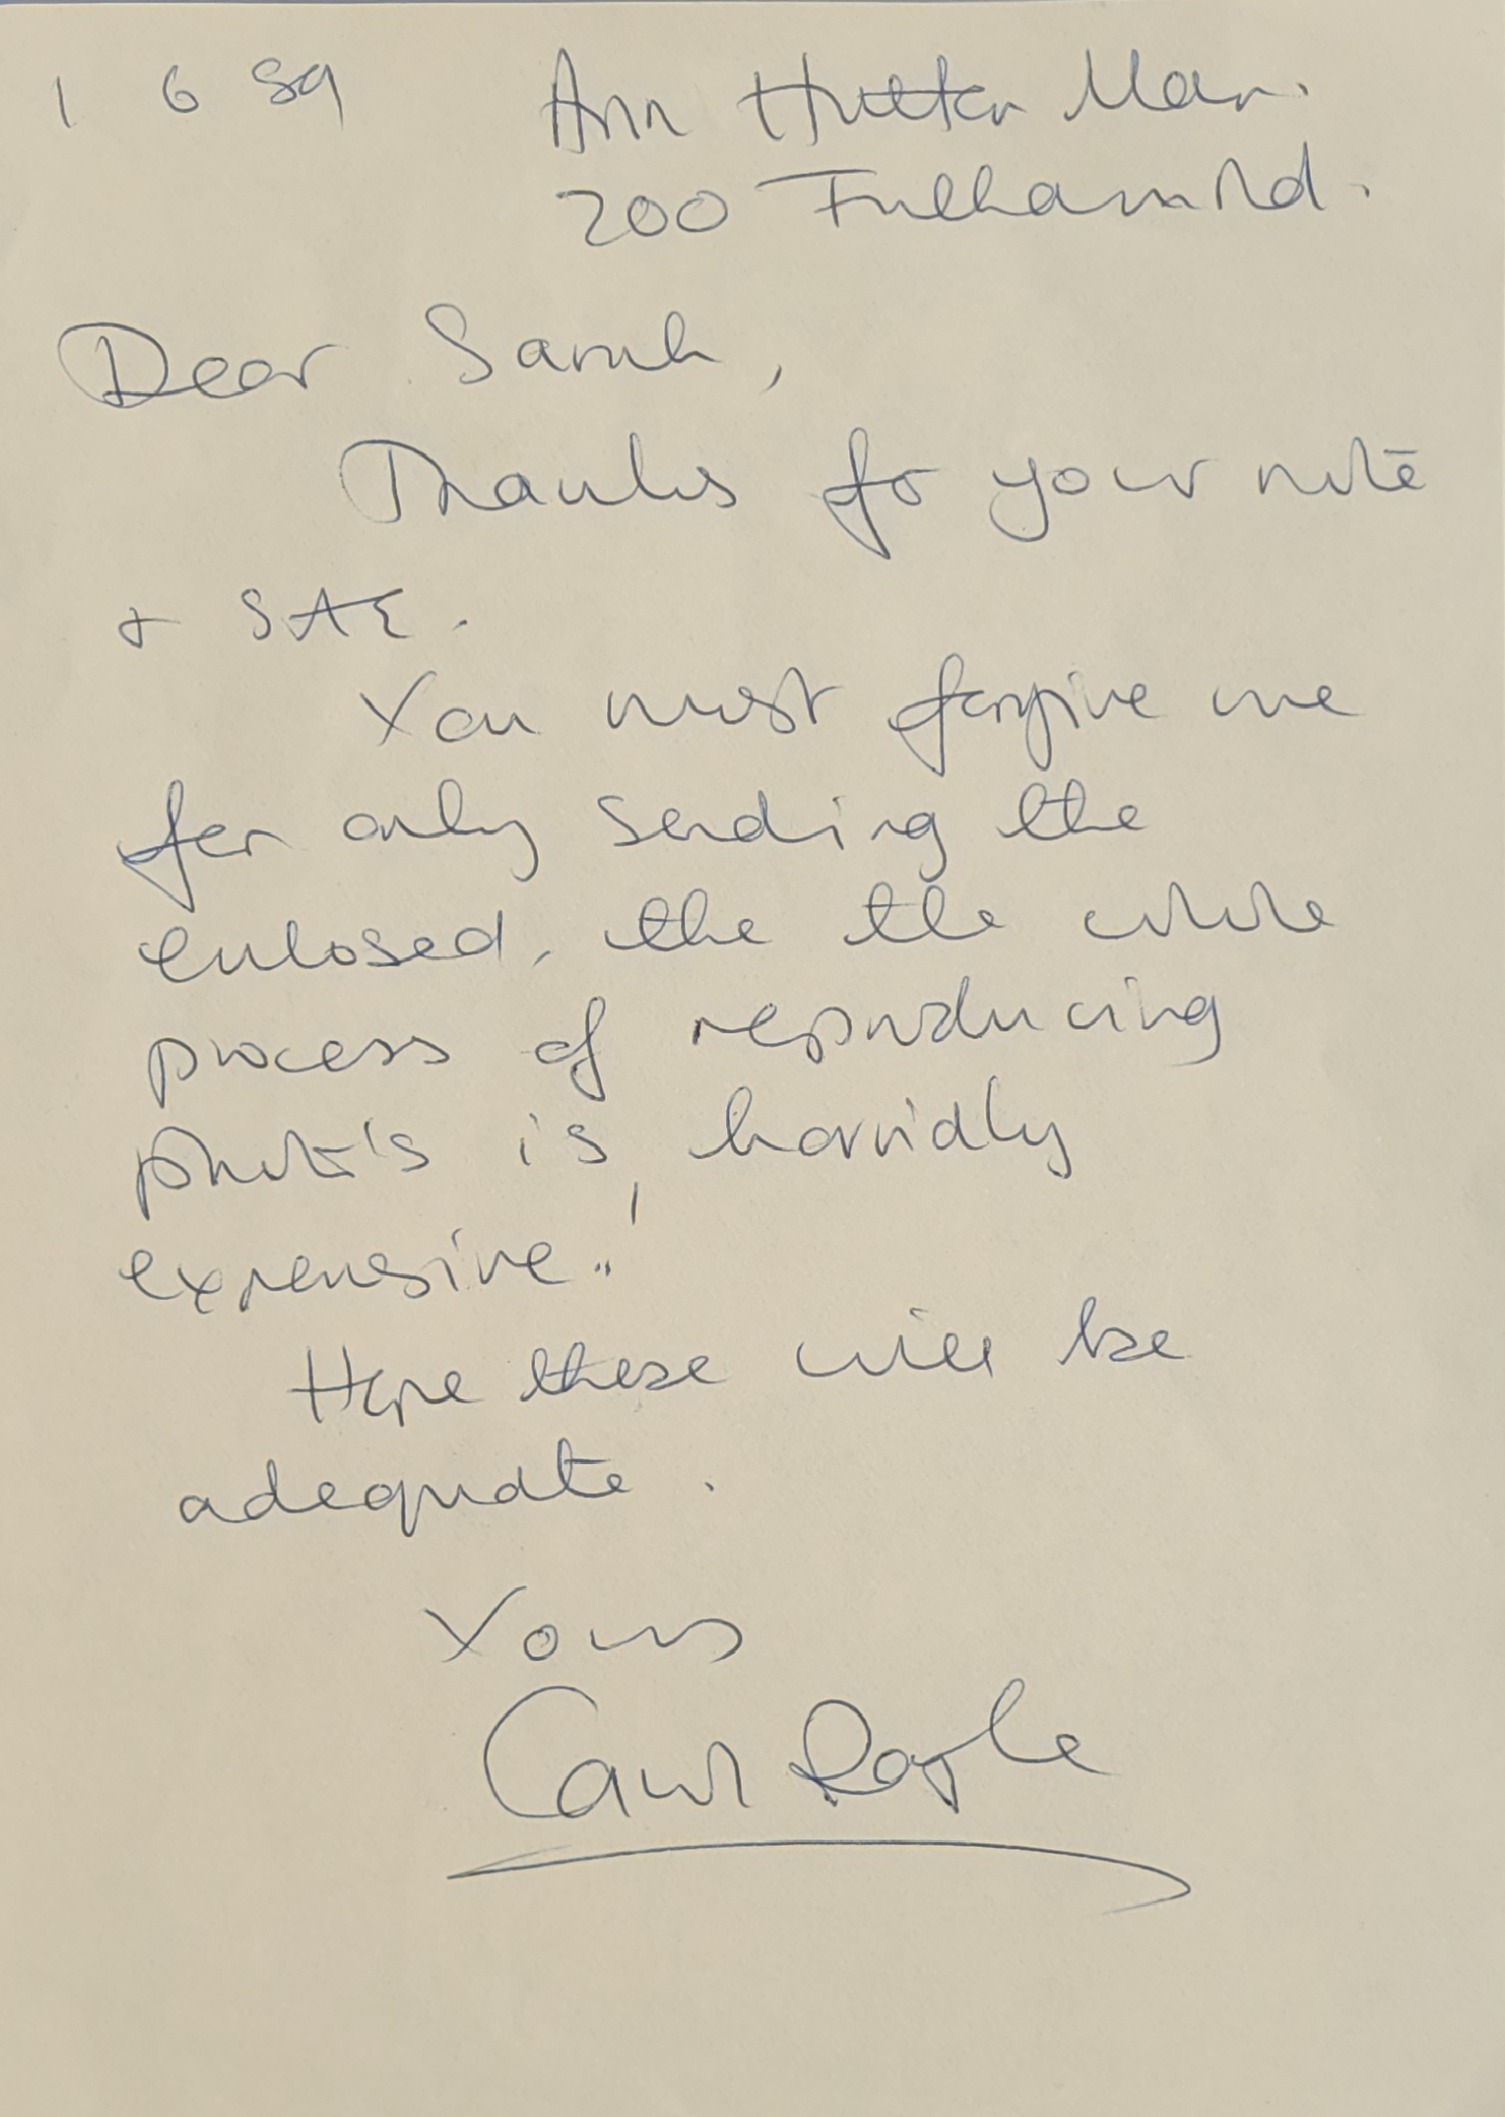 1 6 89 Ann Hutton Man.
200 Fulham Rd.
Dear Sarah,
Thanks for your note
& SAE.
You must forgive me
for only sending the
enlosed, the the whole
process of reproducing
photo's is, horridly
expensive..!
Hope these will be
adequate.
Yours
Carol Royle